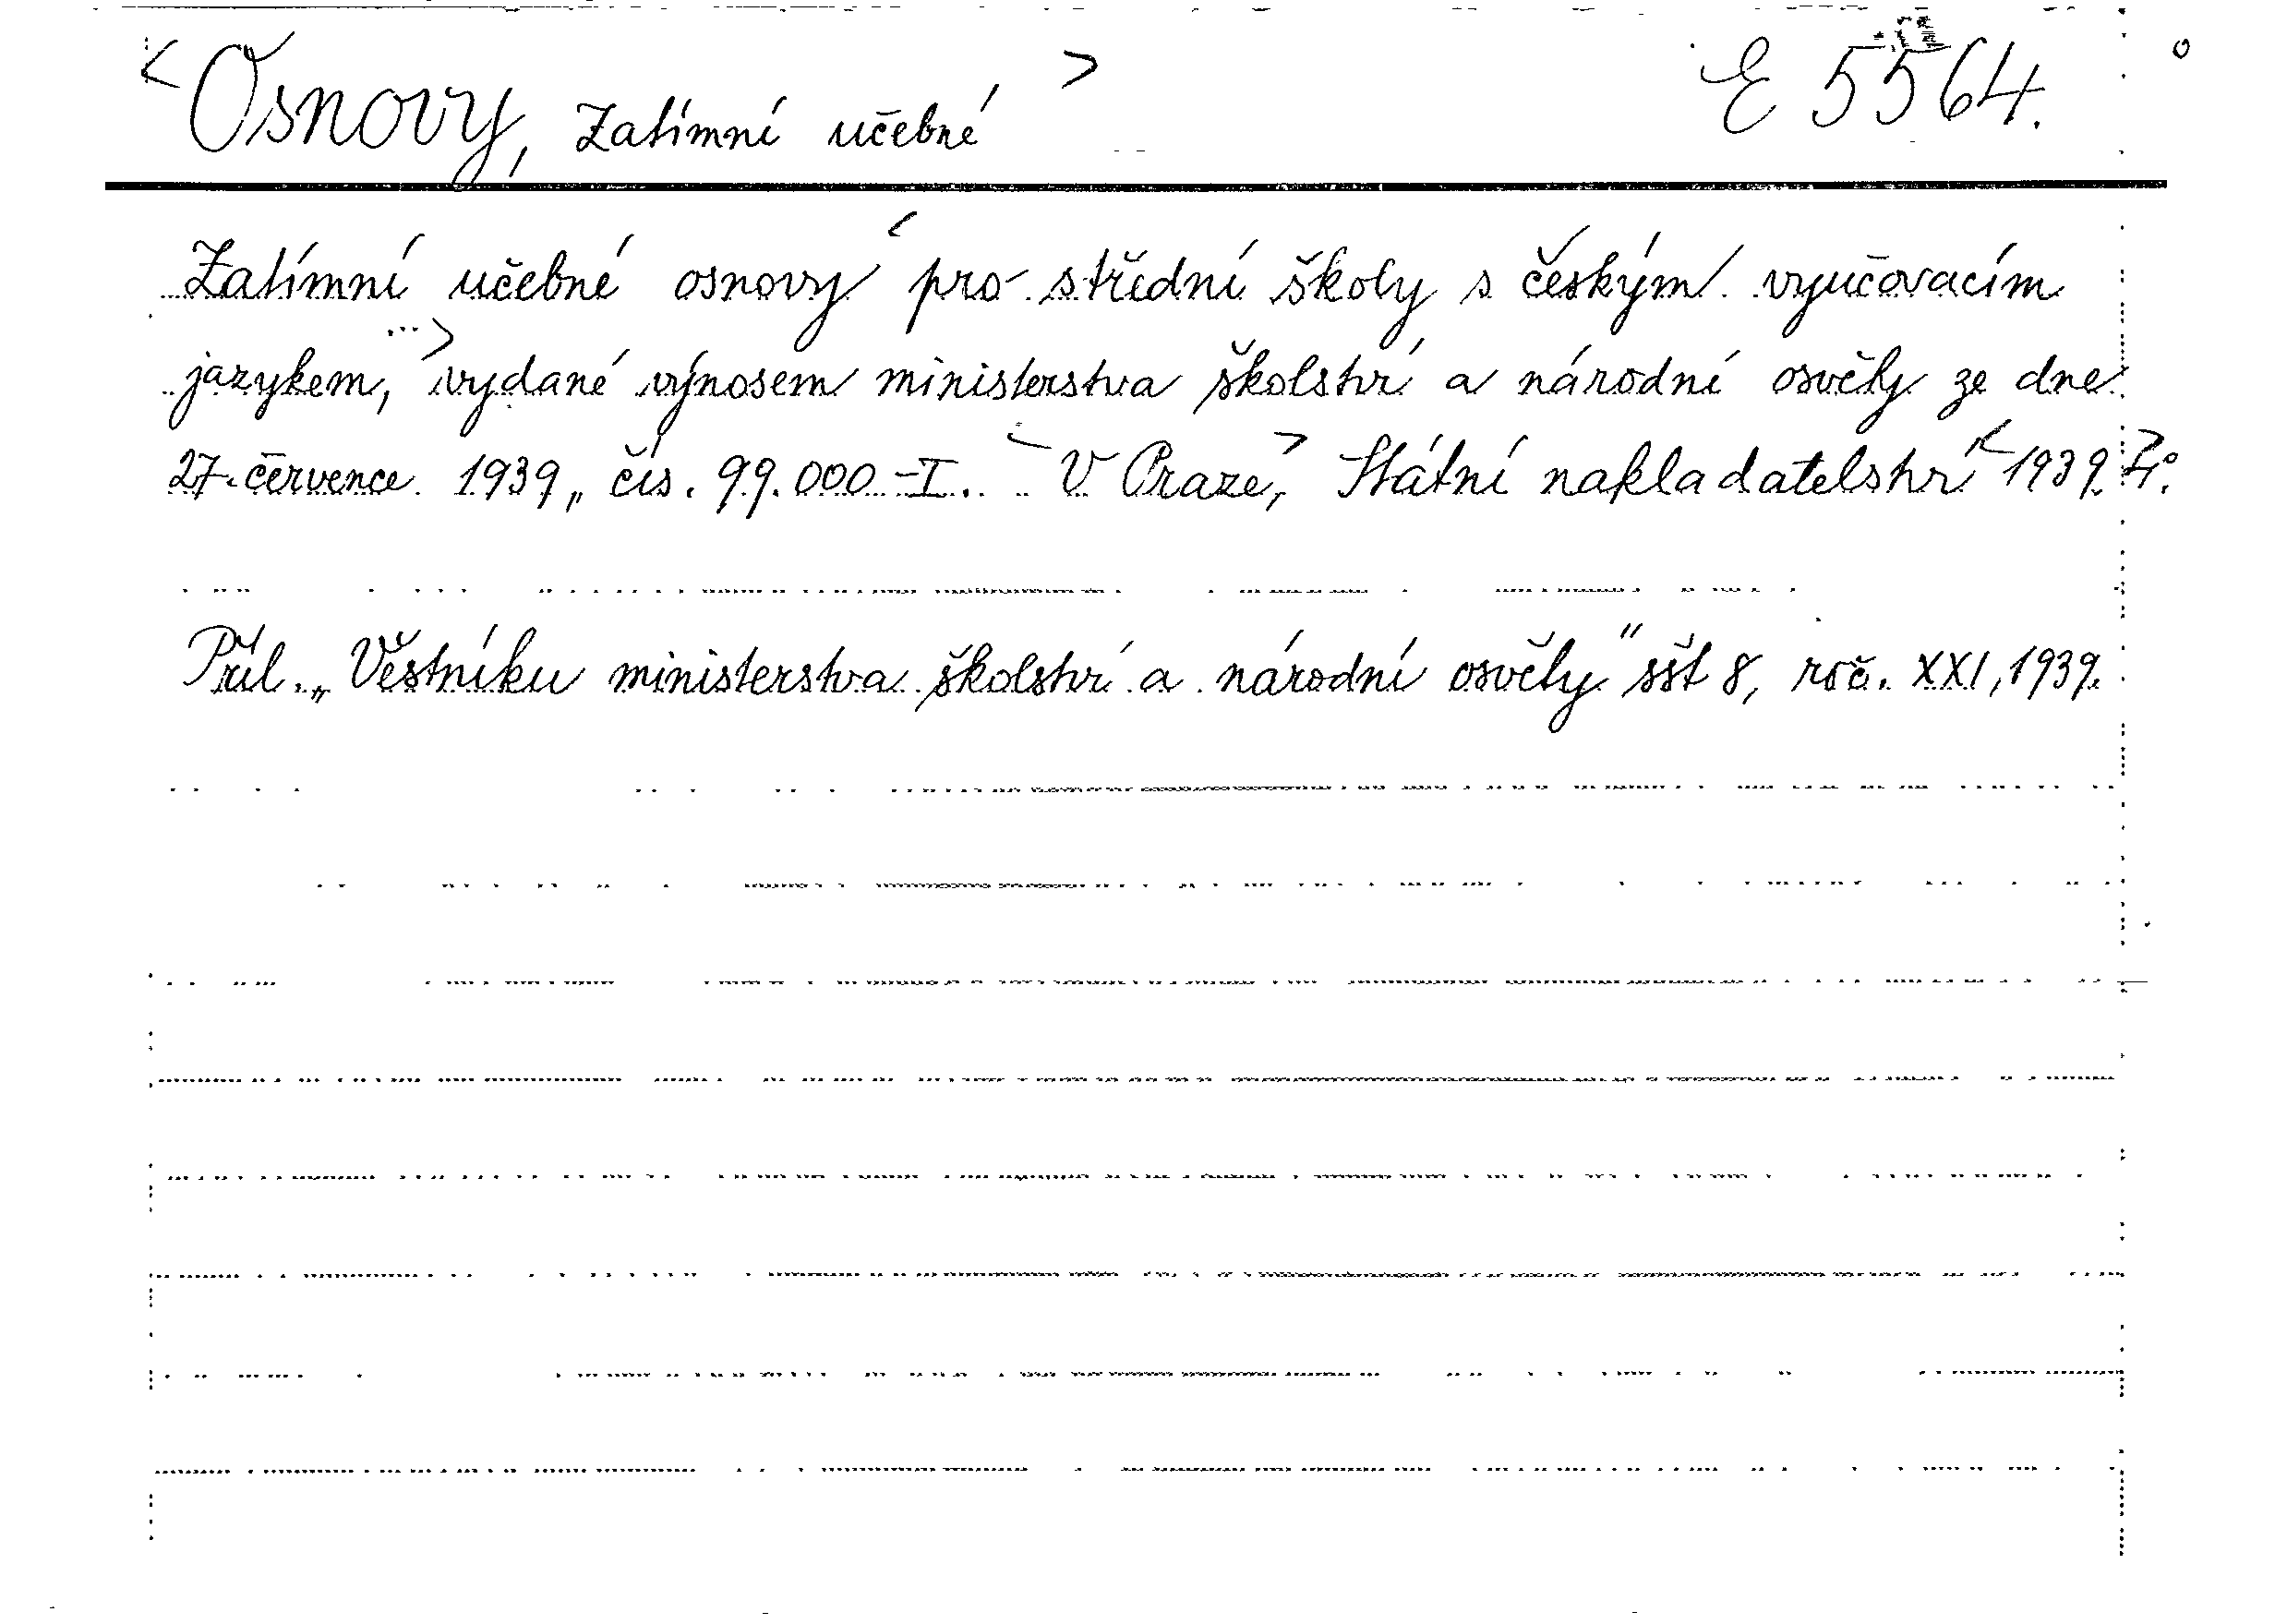 <Osnovy, zatímní učebné> E 5564.
Zatímní učebné osnovy <pro střední školy s českým vyučovacím
jazykem, ...> vydané výnosem ministerstva školství a národní osvěty ze dne
27. července 1939, čís. 99.000-I. - <V Praze,> Státní nakladatelství <1939.> 4°.
Příl. „Věstníku ministerstva školství a národní osvěty" sšt 8, roč. XXI, 1939.